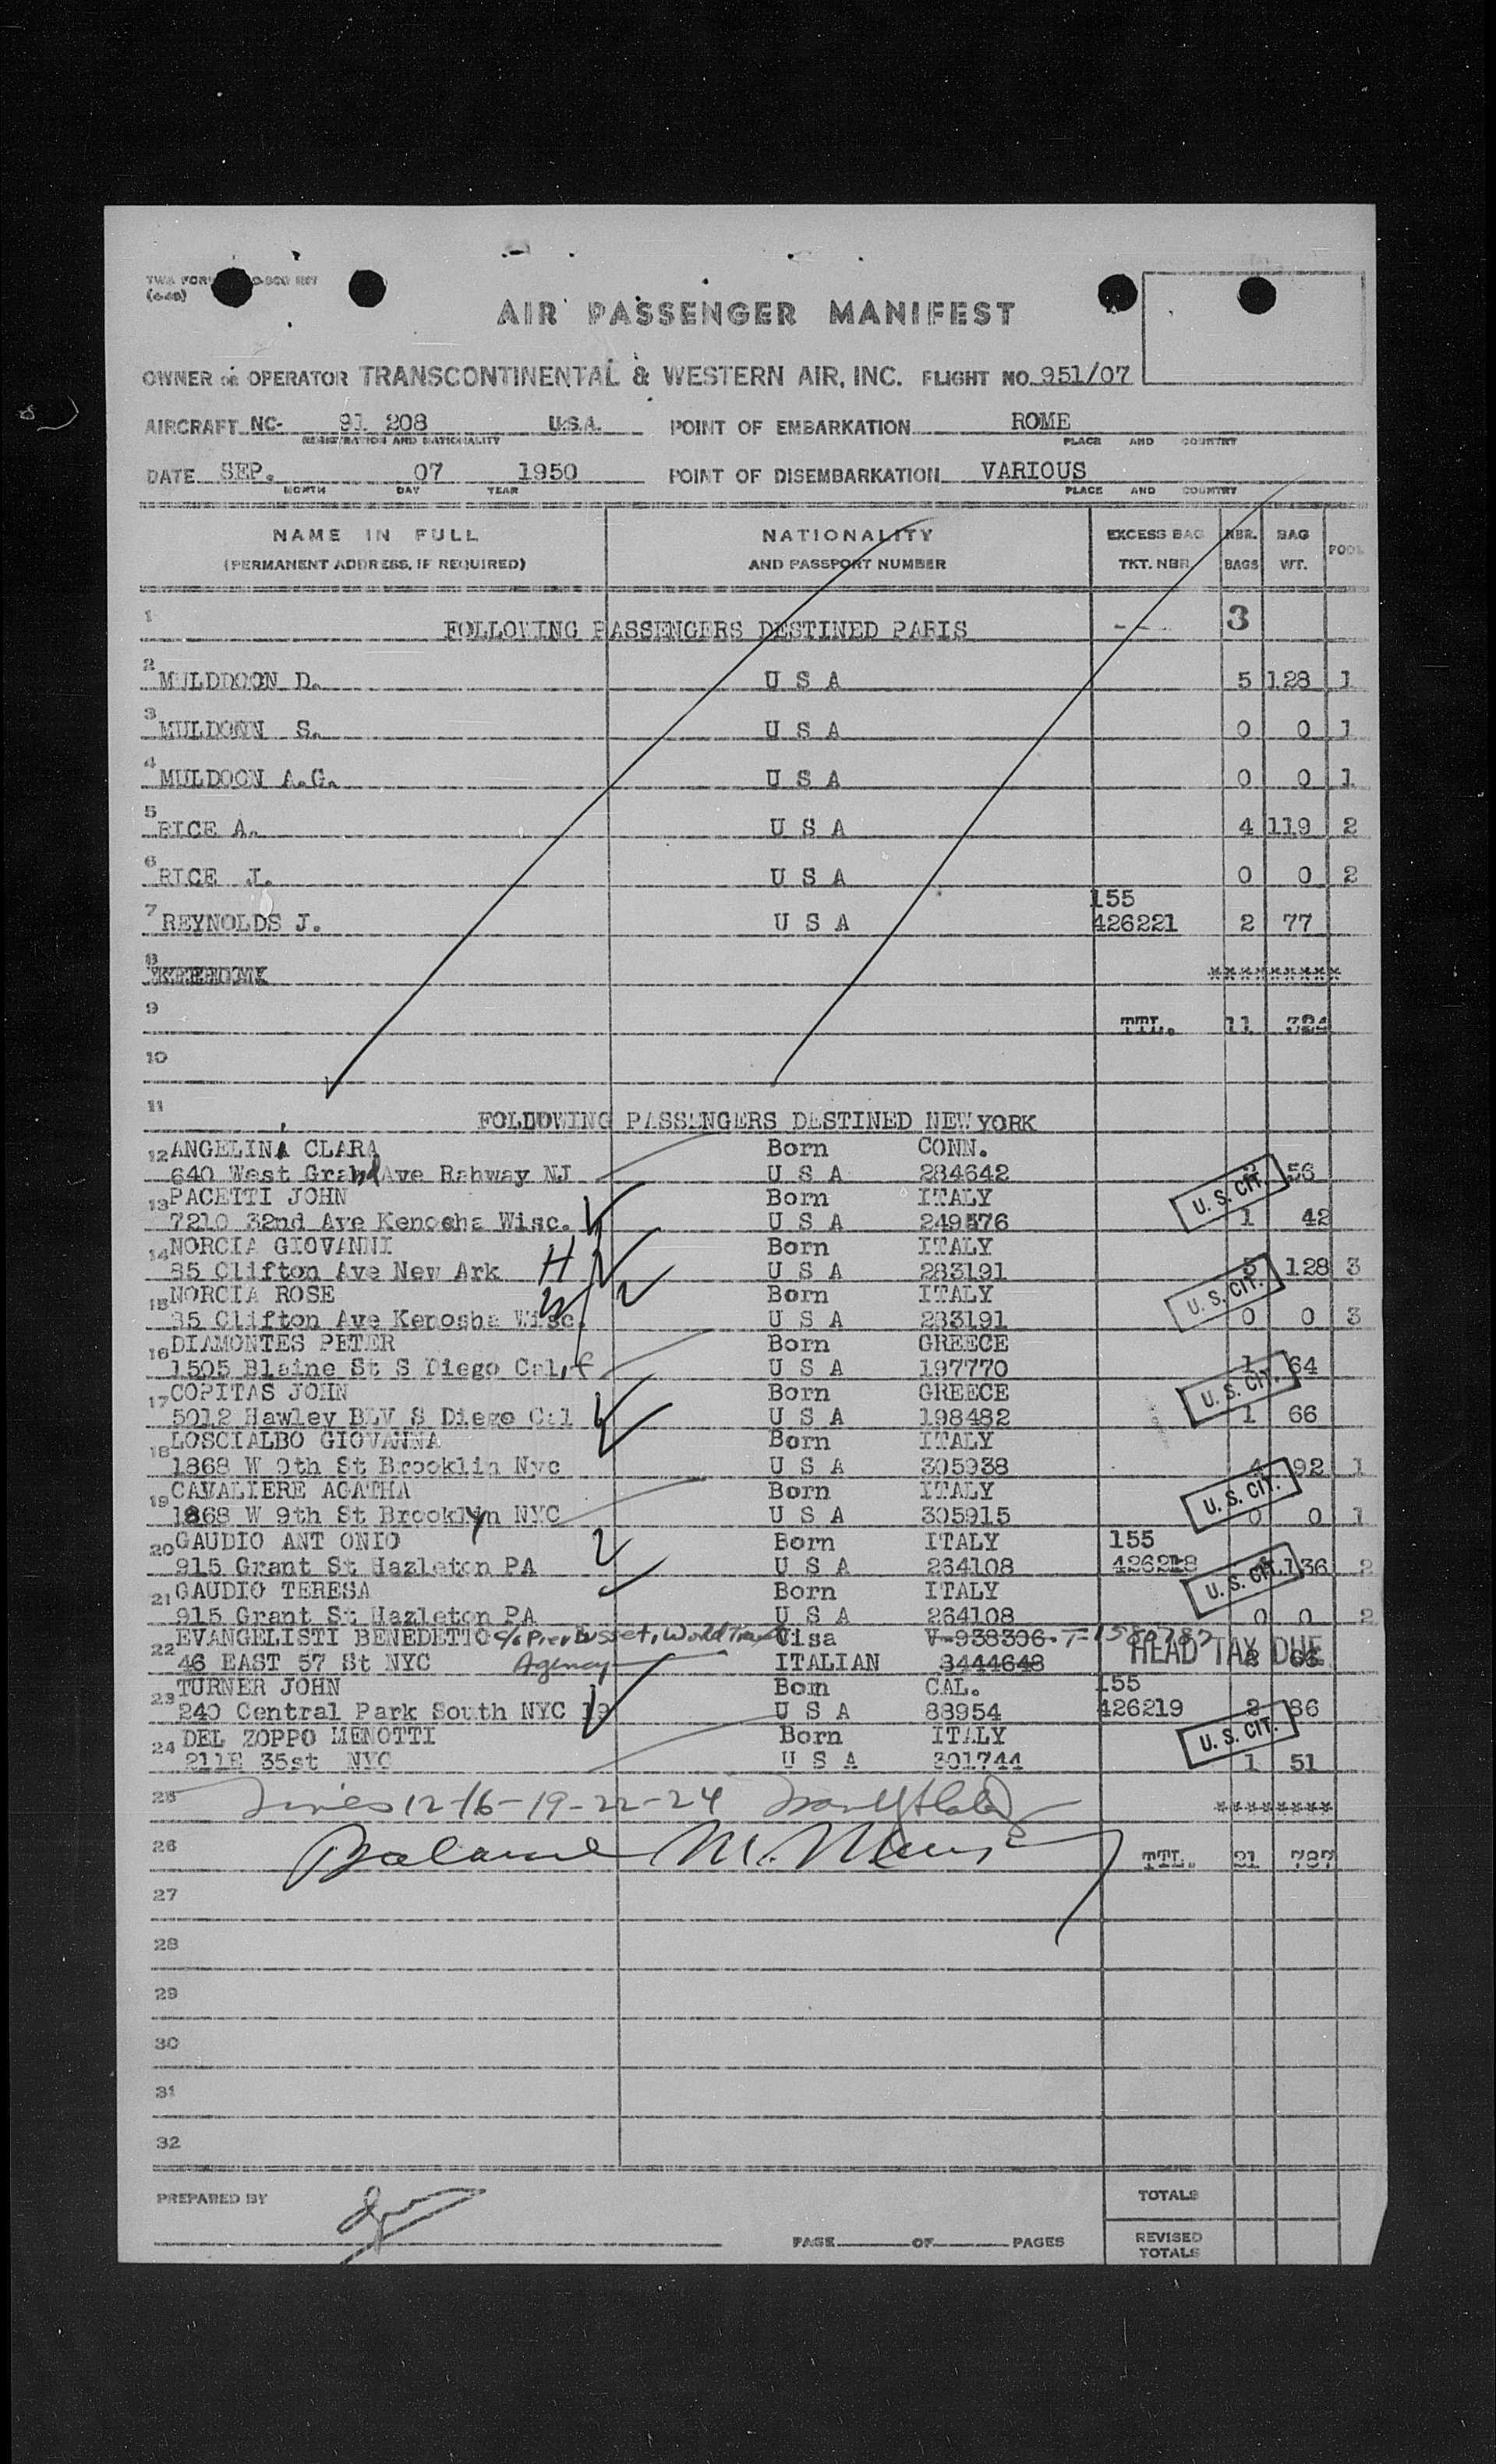 AIR PASSENGER MANIFEST
OWNER OR OPERATOR TRANSCONTINENTAL & WESTERN AIR, INC. FLIGHT NO. 951/07
AIRCRAFT NC- 91 208 U.S.A. POINT OF EMBARKATION ROME
REGISTRATION AND NATIONALITY PLACE AND COUNTRY
DATE SEP. 07 1950 POINT OF DISEMBARKATION VARIOUS
MONTH DAY YEAR PLACE AND COUNTRY
NAME IN FULL NATIONALITY EXCESS BAG NBR. BAG POOL
(PERMANENT ADDRESS, IF REQUIRED) AND PASSPORT NUMBER TKT. NBR. BAGS WT.
1 FOLLOWING PASSENGERS DESTINED PARIS 3
2 MULDDOON D. U S A 5 128 1
3 MULDONN S. U S A 0 0 1
4 MULDOON A.G. U S A 0 0 1
5 RICE A. U S A 4 119 2
6 RICE J. U S A 0 0 2
155
7 REYNOLDS J. U S A 426221 2 77
8 *********
9 TTL. 11 324
10
11 FOLLOWING PASSENGERS DESTINED NEW YORK
12 ANGELINA CLARA Born CONN.
640 West Grand Ave Rahway NJ U S A 284642 56
U. S. CIT.
13 PACETTI JOHN Born ITALY
7210 32nd Ave Kenosha Wisc. U S A 249576 1 42
14 NORCIA GIOVANNI Born ITALY
85 Clifton Ave New Ark H U S A 283191 5 128 3
U. S. CIT.
15 NORCIA ROSE Born ITALY
85 Clifton Ave Kenosha Wisc. U S A 283191 0 0 3
16 DIAMONTES PETER Born GREECE
1505 Blaine St S Diego Calif U S A 197770 1 64
U. S. CIT.
17 COPITAS JOHN Born GREECE
5012 Hawley BLV S Diego Cal U S A 198482 1 66
18 LOSCIALBO GIOVANNA Born ITALY
1868 W 9th St Brooklin Nyc U S A 305938 4 92 1
U. S. CIT.
19 CAVALIERE AGATHA Born ITALY
1868 W 9th St Brooklyn NYC U S A 305915 0 0 1
20 GAUDIO ANT ONIO Born ITALY 155
915 Grant St Hazleton PA U S A 264108 426218 136 2
U. S. CIT.
21 GAUDIO TERESA Born ITALY
915 Grant St Hazleton PA U S A 264108 0 0 2
22 EVANGELISTI BENEDETTO c/o Pier Busset, World Travel Visa V-938306
46 EAST 57 St NYC Agency ITALIAN 3444648 HEAD TAX DUE
23 TURNER JOHN Born CAL. 155
240 Central Park South NYC 19 U S A 88954 426219 2 86
U. S. CIT.
24 DEL ZOPPO MENOTTI Born ITALY
211E 35st NYC U S A 301744 1 51
25 Lines 12-16-19-22-24 ********
26 Balance TTL. 21 787
27
28
29
30
31
32
PREPARED BY TOTALS
PAGE OF PAGES REVISED TOTALS